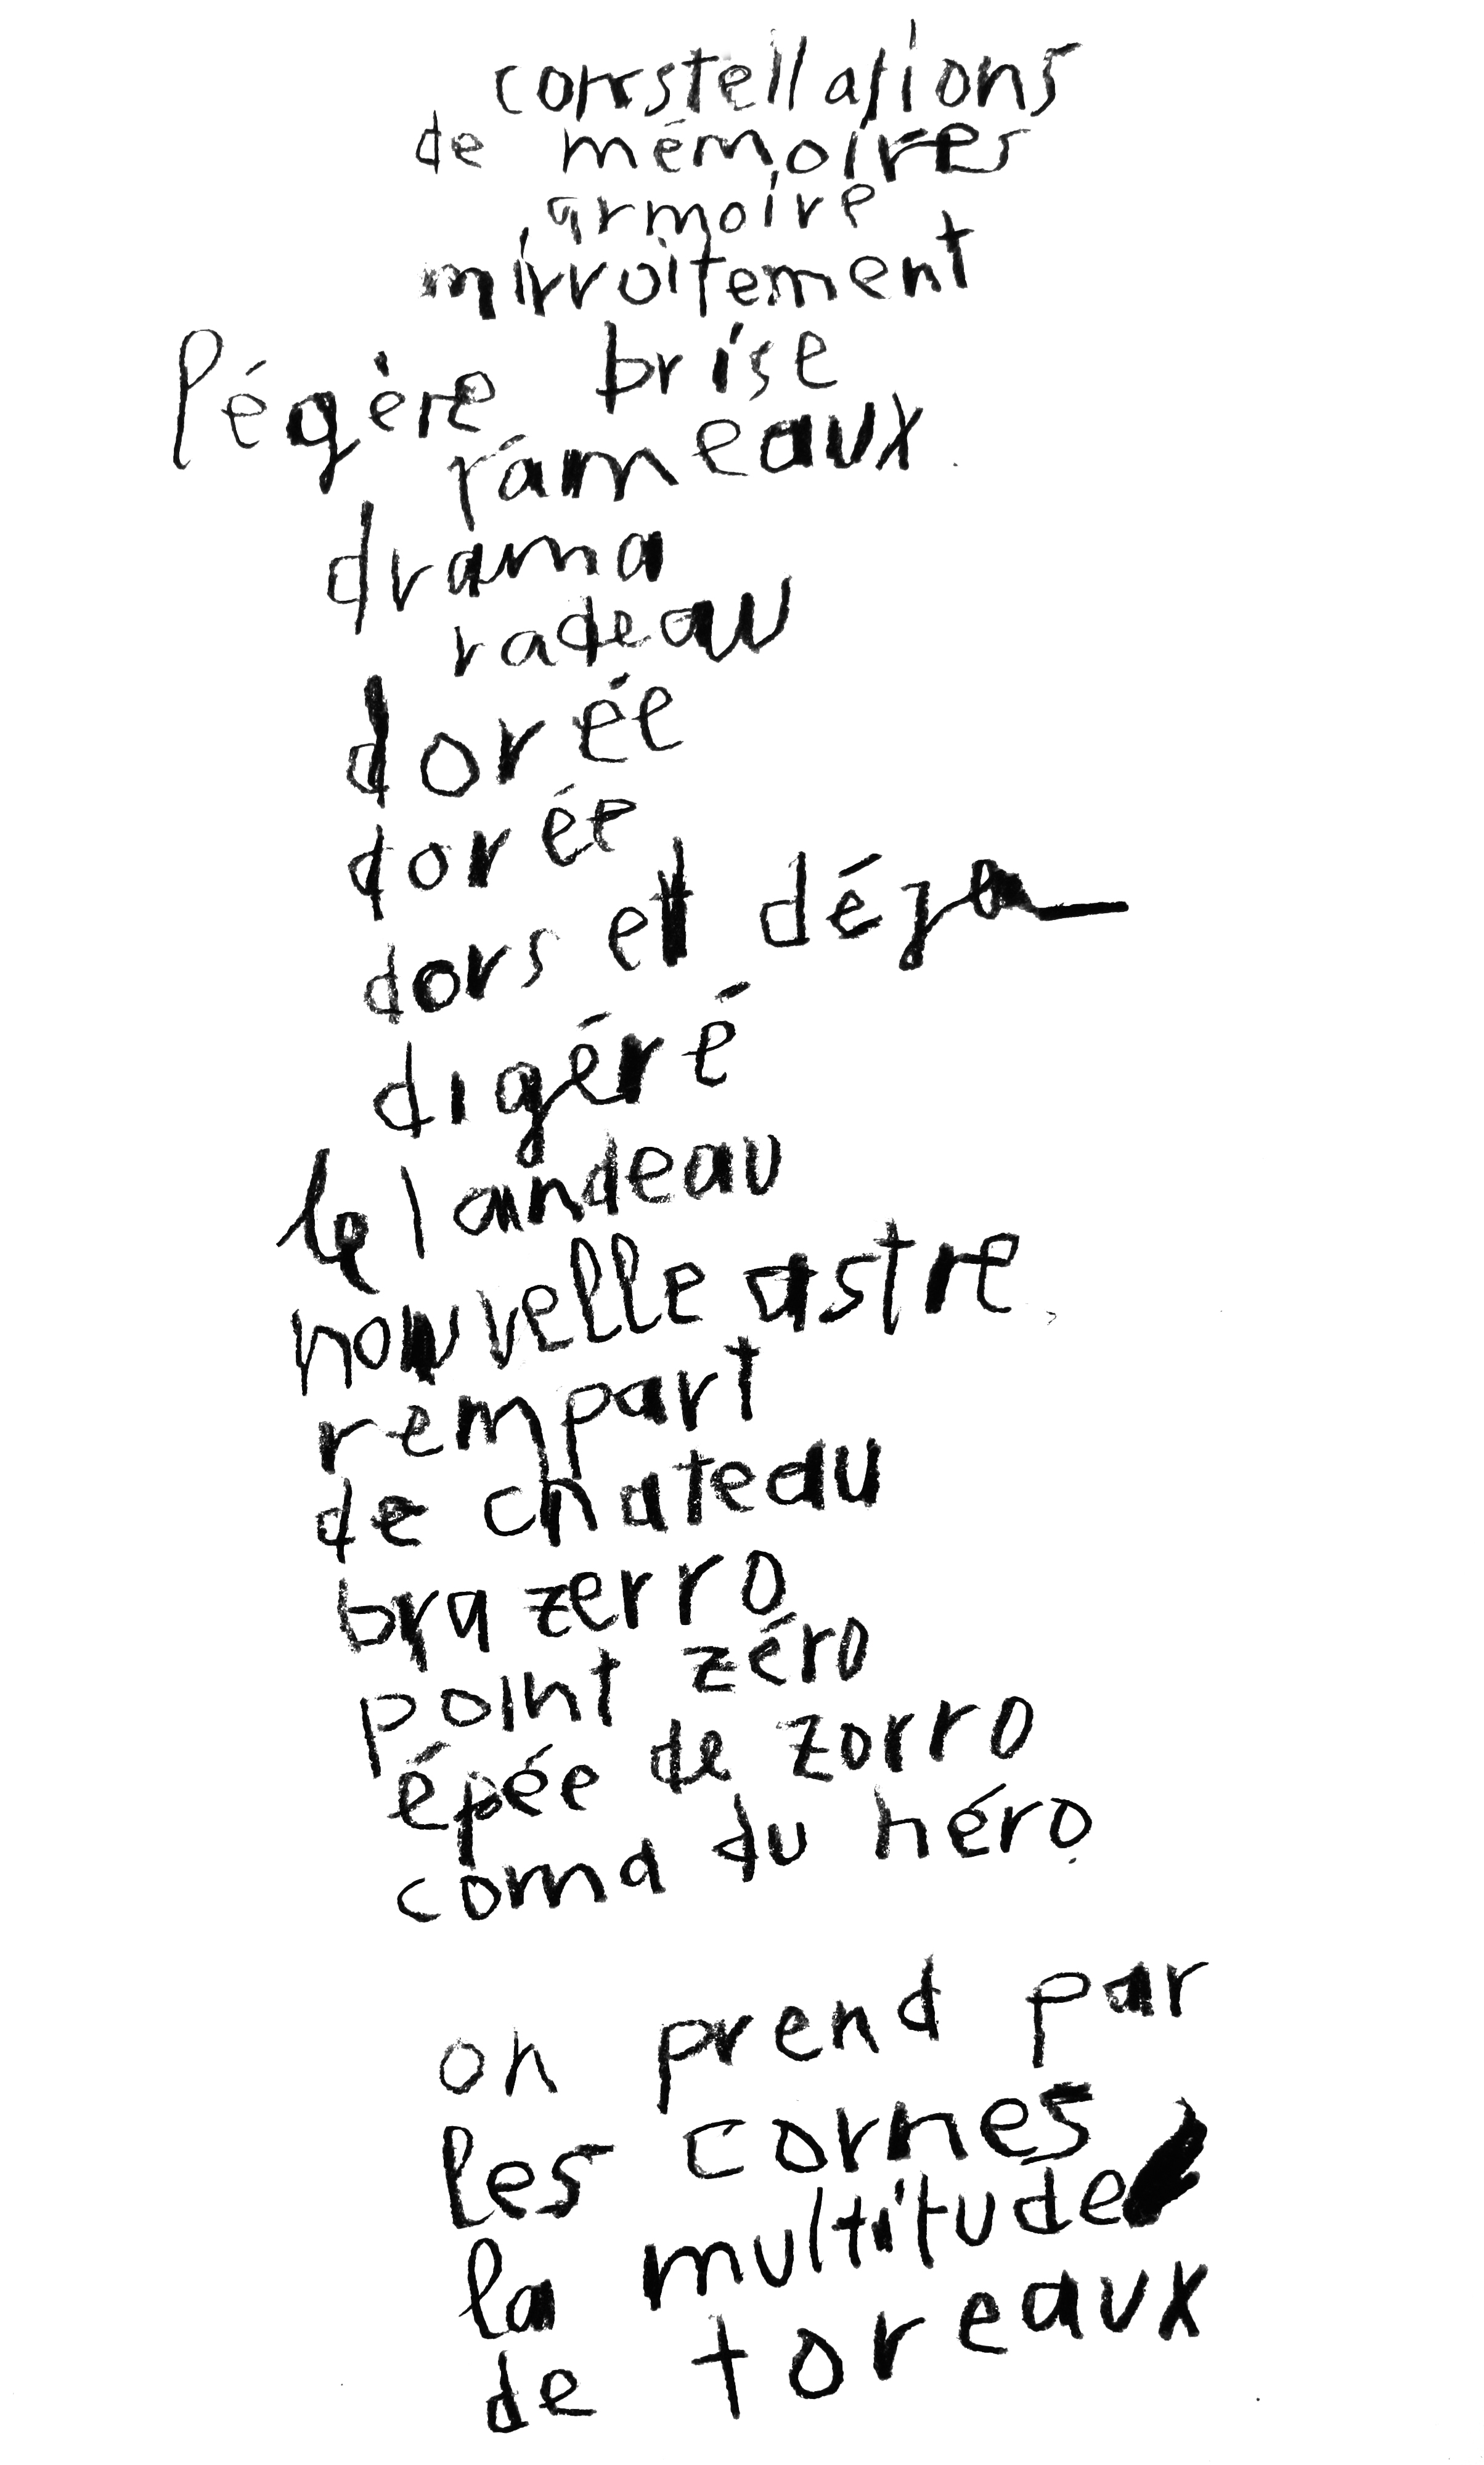 constellations
de mémoires
armoire
mirroitement
légère brise
rameaux
drama
radeau
dorée
dorée
dors et déja
digéré
le landeau
nouvelle astre
rempart
de chateau
brazerro
point zéro
épée de zorro
coma du héro
on prend par
les cornes
la multitude
de toreaux